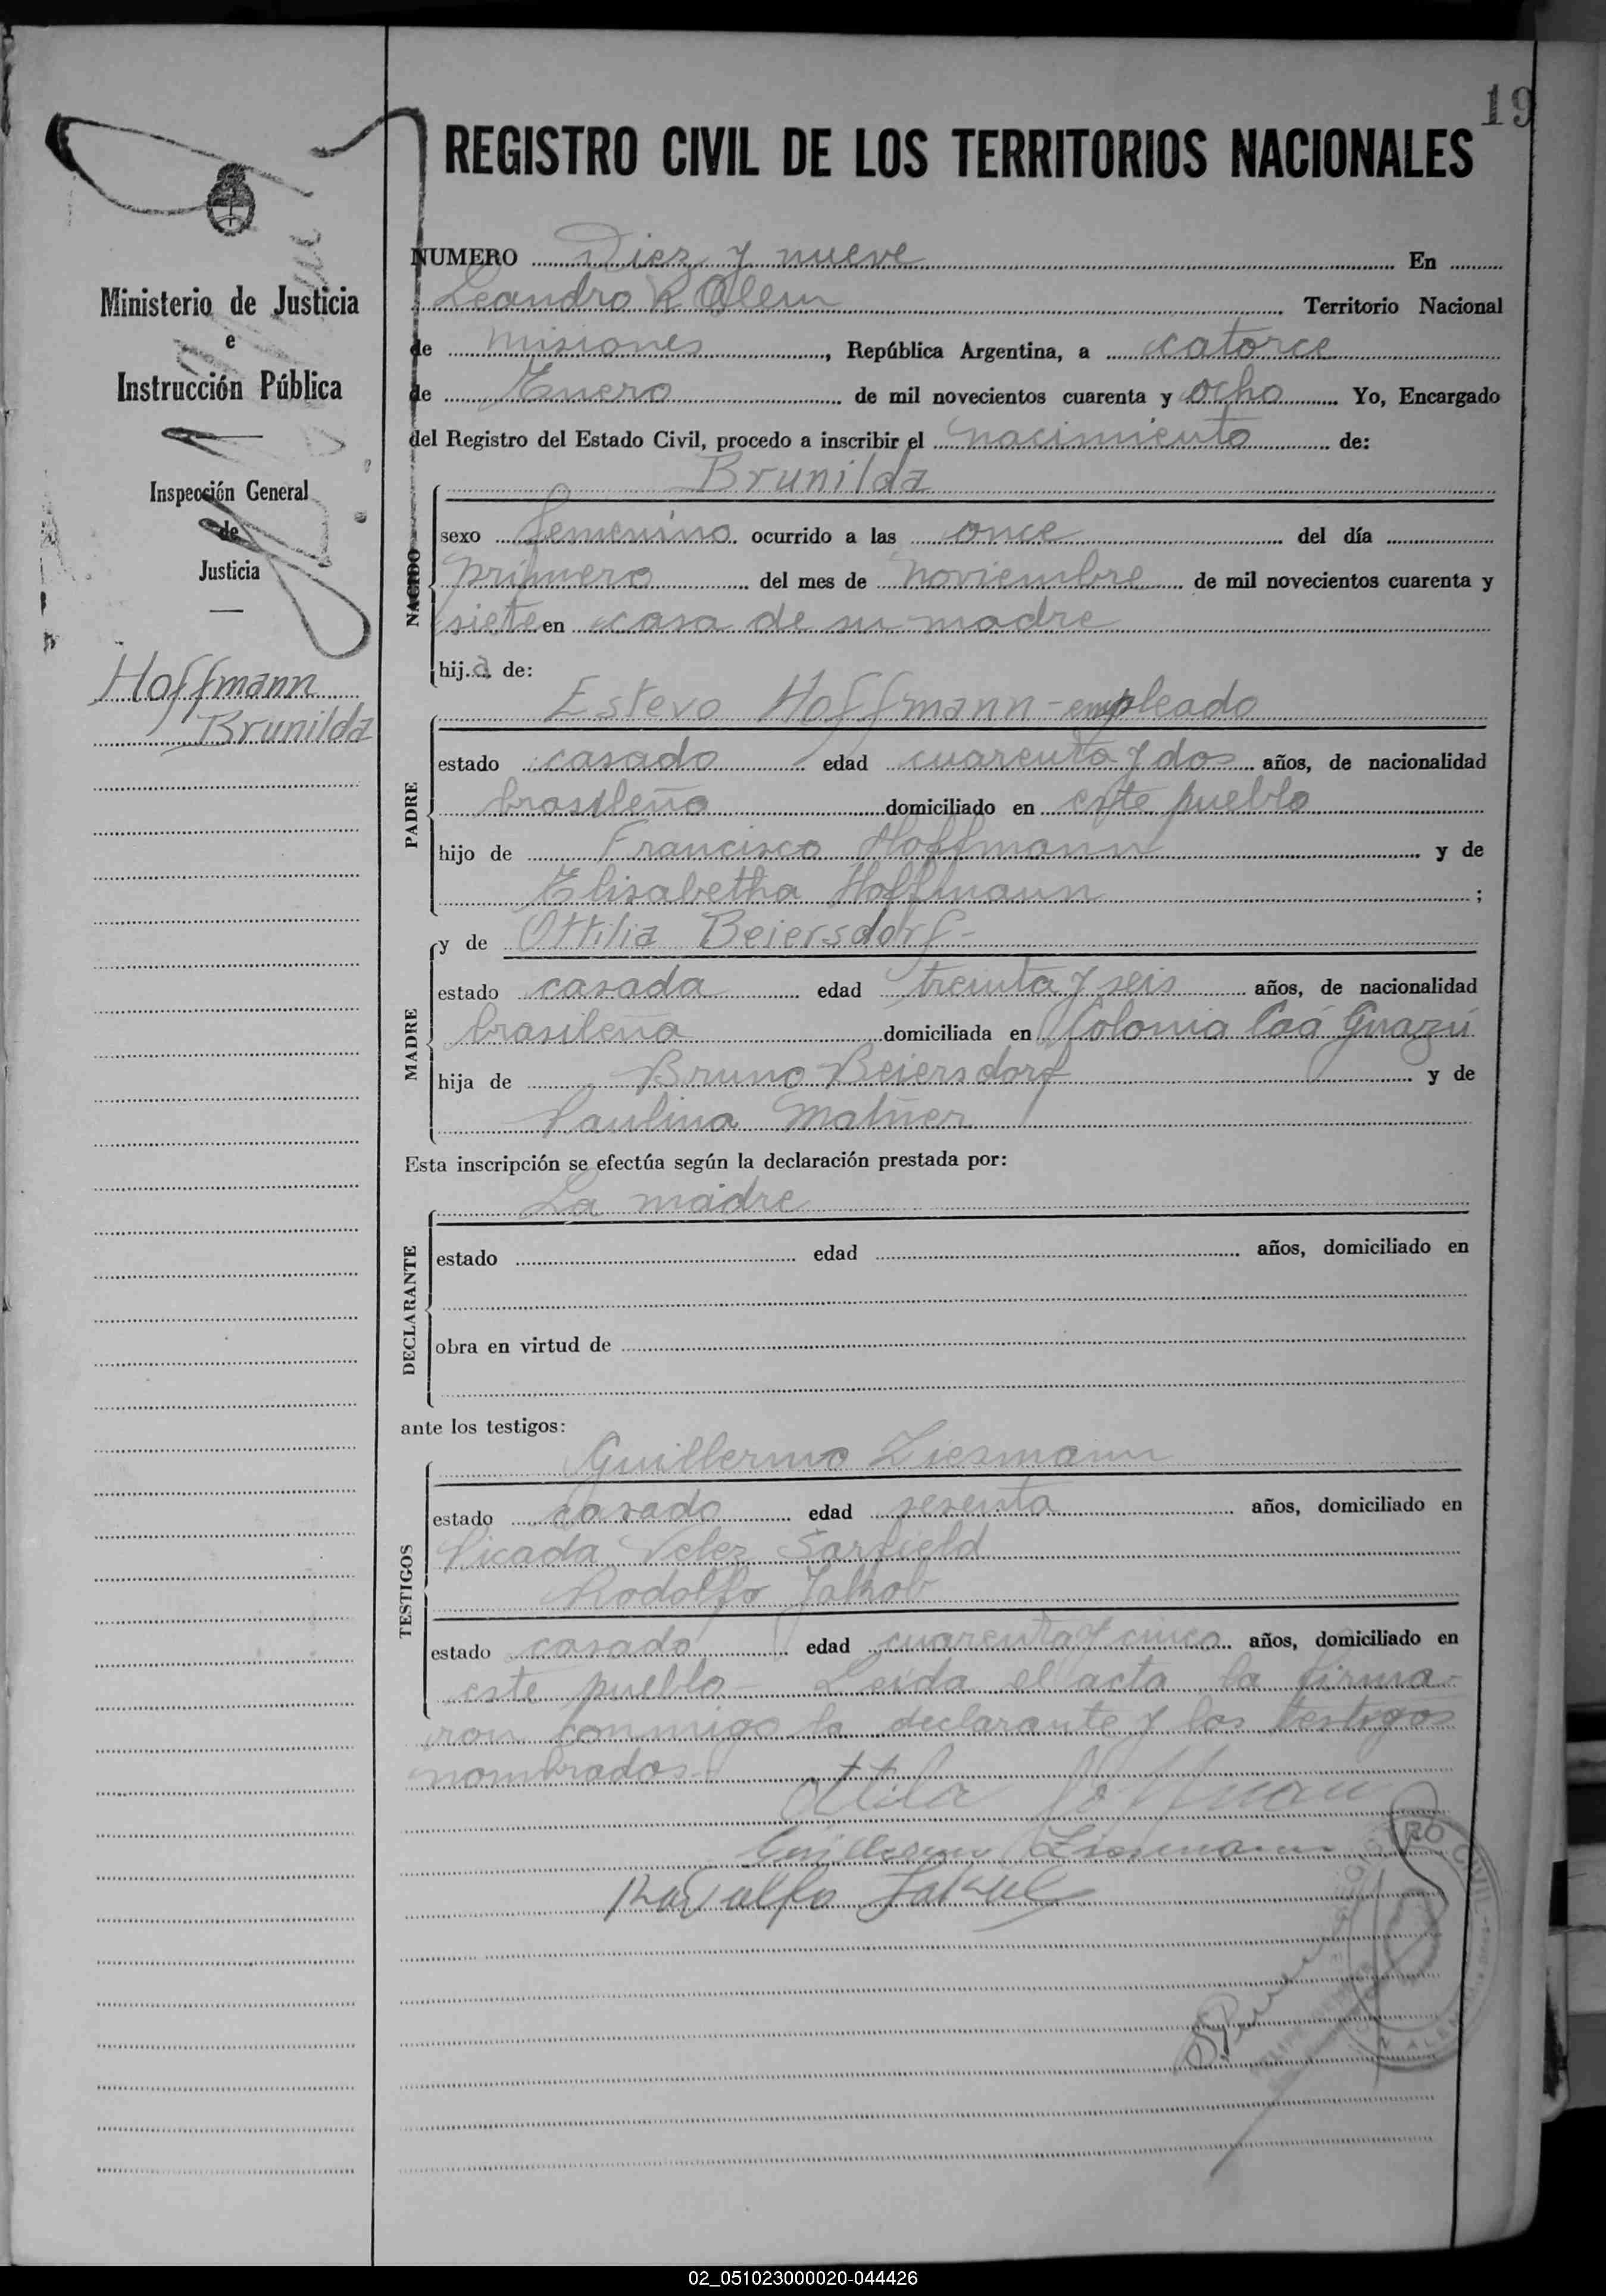 19
REGISTRO CIVIL DE LOS TERRITORIOS NACIONALES
Ministerio de Justicia
e
Instrucción Pública
Inspección General
de
Justicia
Hoffmann
Brunilda
NUMERO Diez y nueve En
Leandro N Alem Territorio Nacional
de Misiones, República Argentina, a catorce
de Enero de mil novecientos cuarenta y ocho Yo, Encargado
del Registro del Estado Civil, procedo a inscribir el nacimiento de:
NACIDO
Brunilda
sexo femenino ocurrido a las once del día
primero del mes de noviembre de mil novecientos cuarenta y
siete en casa de su madre
hija de:
PADRE
Estevo Hoffmann - empleado
estado casado edad cuarenta y dos años, de nacionalidad
brasileña domiciliado en este pueblo
hijo de Francisco Hoffmann y de
Elisabetha Hoffmann ;
MADRE
y de Ottilia Beiersdorf -
estado casada edad treinta y seis años, de nacionalidad
brasileña domiciliada en Colonia Caá Guazú
hija de Bruno Beiersdorf y de
Paulina
Esta inscripción se efectúa según la declaración prestada por:
DECLARANTE
La madre
estado edad años, domiciliado en
obra en virtud de
ante los testigos:
TESTIGOS
Guillermo Ziesmann
estado casado edad sesenta años, domiciliado en
Picada Velez Sarfield
Rodolfo Jakob
estado casado edad cuarenta y cinco años, domiciliado en
este pueblo - Leida el acta la firma-
ron conmigo la declarante y los testigos
nombrados -
Ottila Hoffman
Guillermo Ziesmann
Rodolfo Jakob
CIVIL
02_051023000020-044426